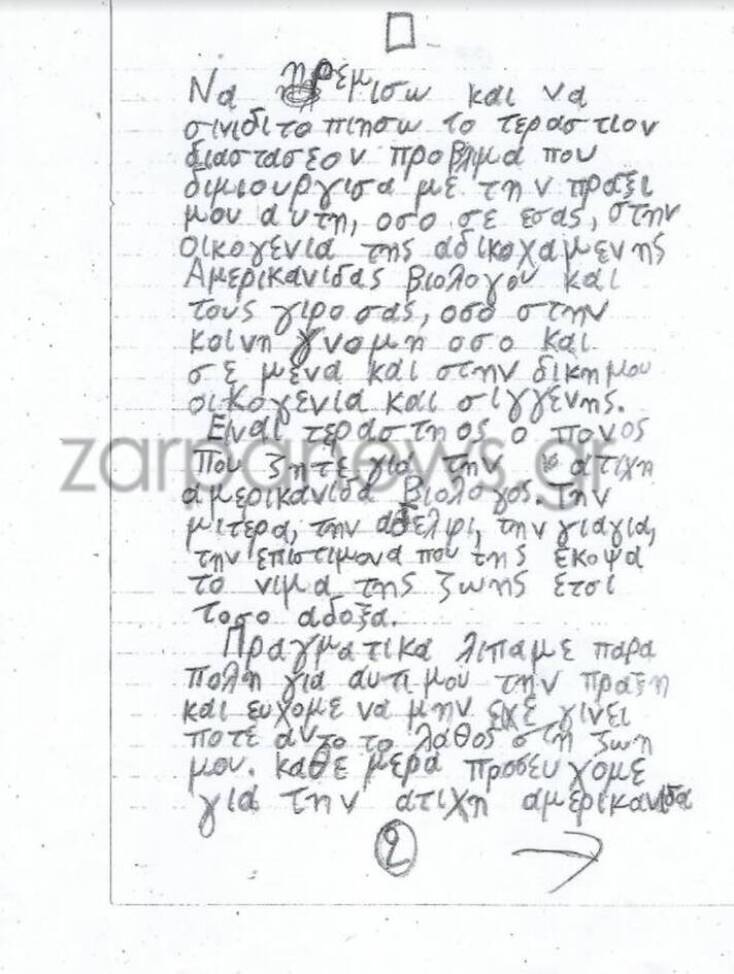 Να ηρεμισω και να
σινιδιτοπιησω το τεραστιον
διαστασεον προβλιμα που
διμιουργισα με την πραξι
μου αυτη, οσο σε εσας, στην
οικογενια της αδικοχαμενης
Αμερικανιδας βιολογου και
τους γιρο σας, οσο στην
κοινη γνομη οσο και
σε μενα και στην δικη μου
οικογενια και σιγγενης.
Ειναι τεραστηος ο πονος
που ζητε για την ατιχη
αμερικανιδα βιολογος. Την
μιτερα, την αδελφι, την γιαγια,
την επιστιμονα που της εκοψα
το νιμα της ζωης ετσι
τοσο αδοξα.
Πραγματικα λιπαμε παρα
πολη για αυτι μου την πραξη
και ευχομε να μην ειχε γινει
ποτε αυτο το λαθος στη ζωη
μου. καθε μερα προσευχομε
για την ατιχη αμερικανιδα
2
zarpanews.gr